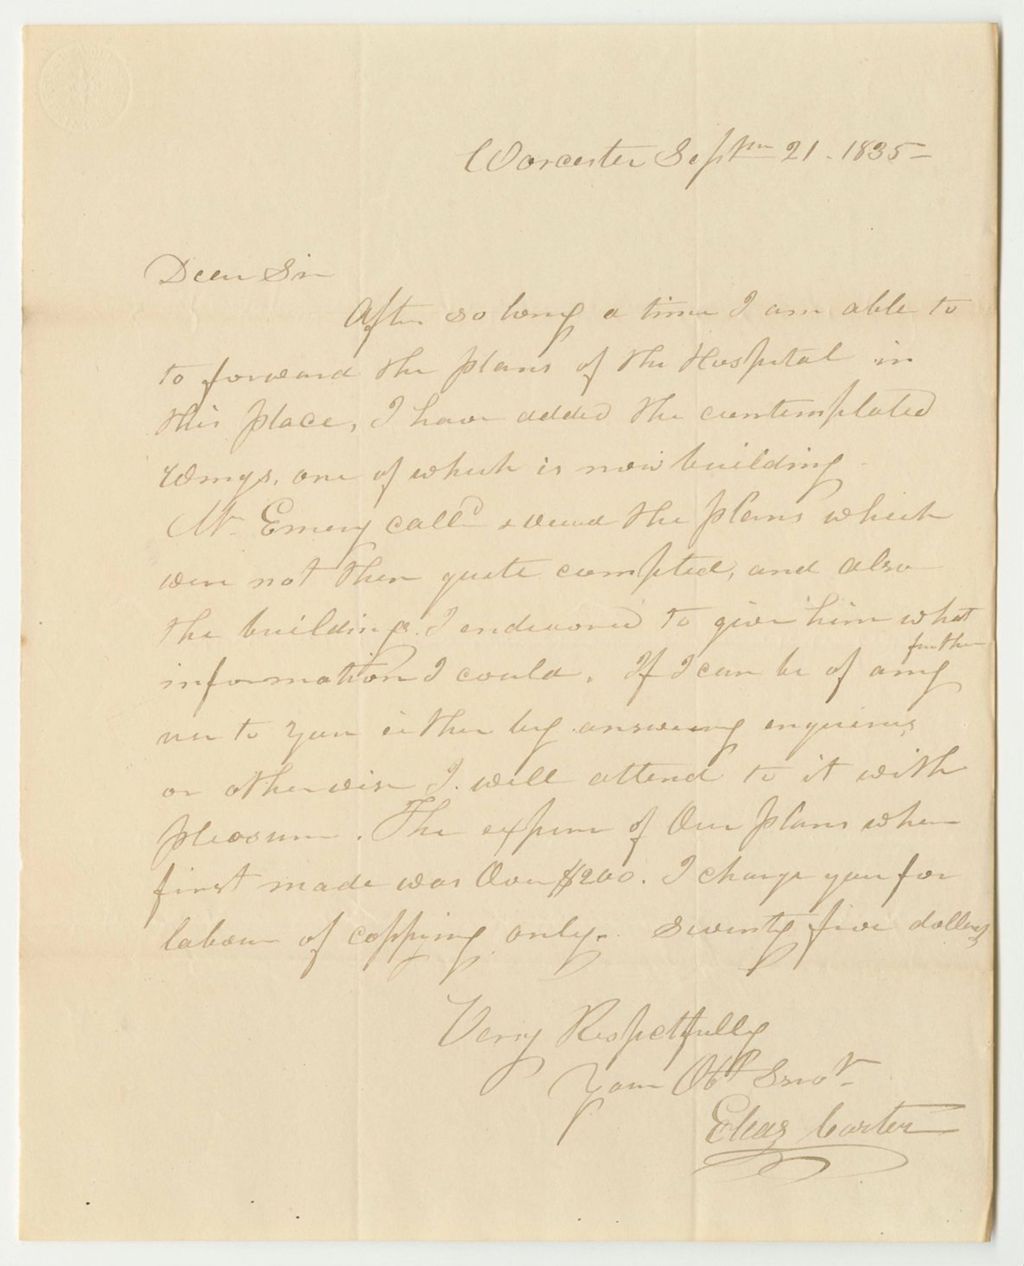 Worcester Septm 21. 1835-
Dear Sir
After so long a time I am able to
to forward the plans of the Hospital in
this place, I have added the contemplated
Wings, one of which is now building.
Mr. Emery calld & viewd the plans which
were not then quite completed, and also
the buildings. I endeavored to give him what
further
information I could. If I can be of any
use to you either by answering enquiries
or otherwise I will attend to it with
pleasure. The expense of Our plans when
first made was Over $200. I charge you for
labour of copping only. Seventy five dollars
Very Respectfully
Your Obt Servt
Elias Carter